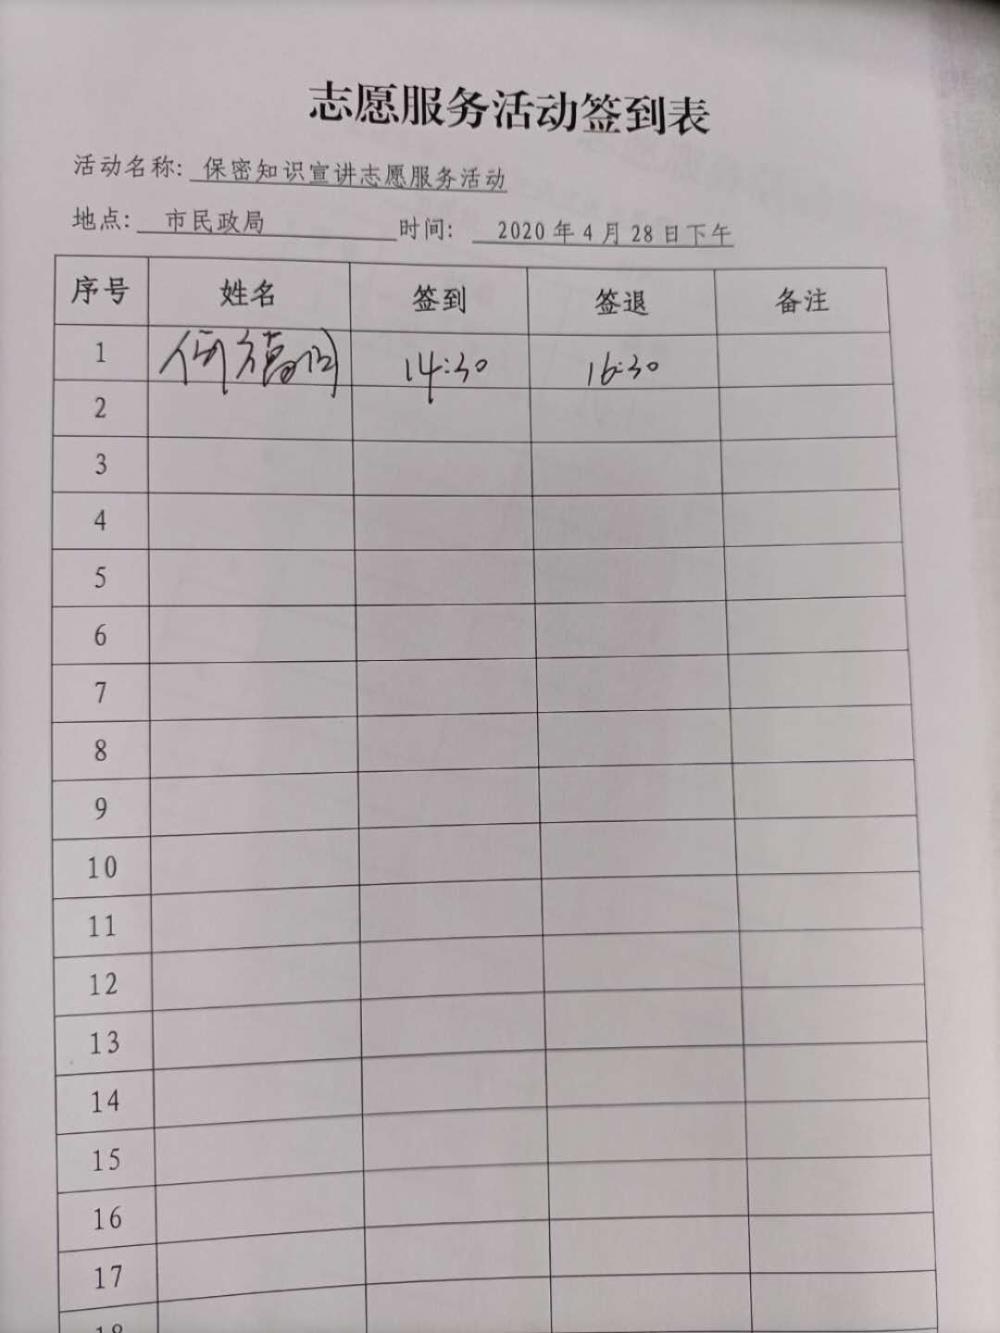 志愿服务活动签到表
活动名称: 保密知识宣讲志愿服务活动
地点: 市民政局 时间: 2020年4月28日下午
序号 姓名 签到 签退 备注
1 14:30 16:30
2
3
4
5
6
7
8
9
10
11
12
13
14
15
16
17
18